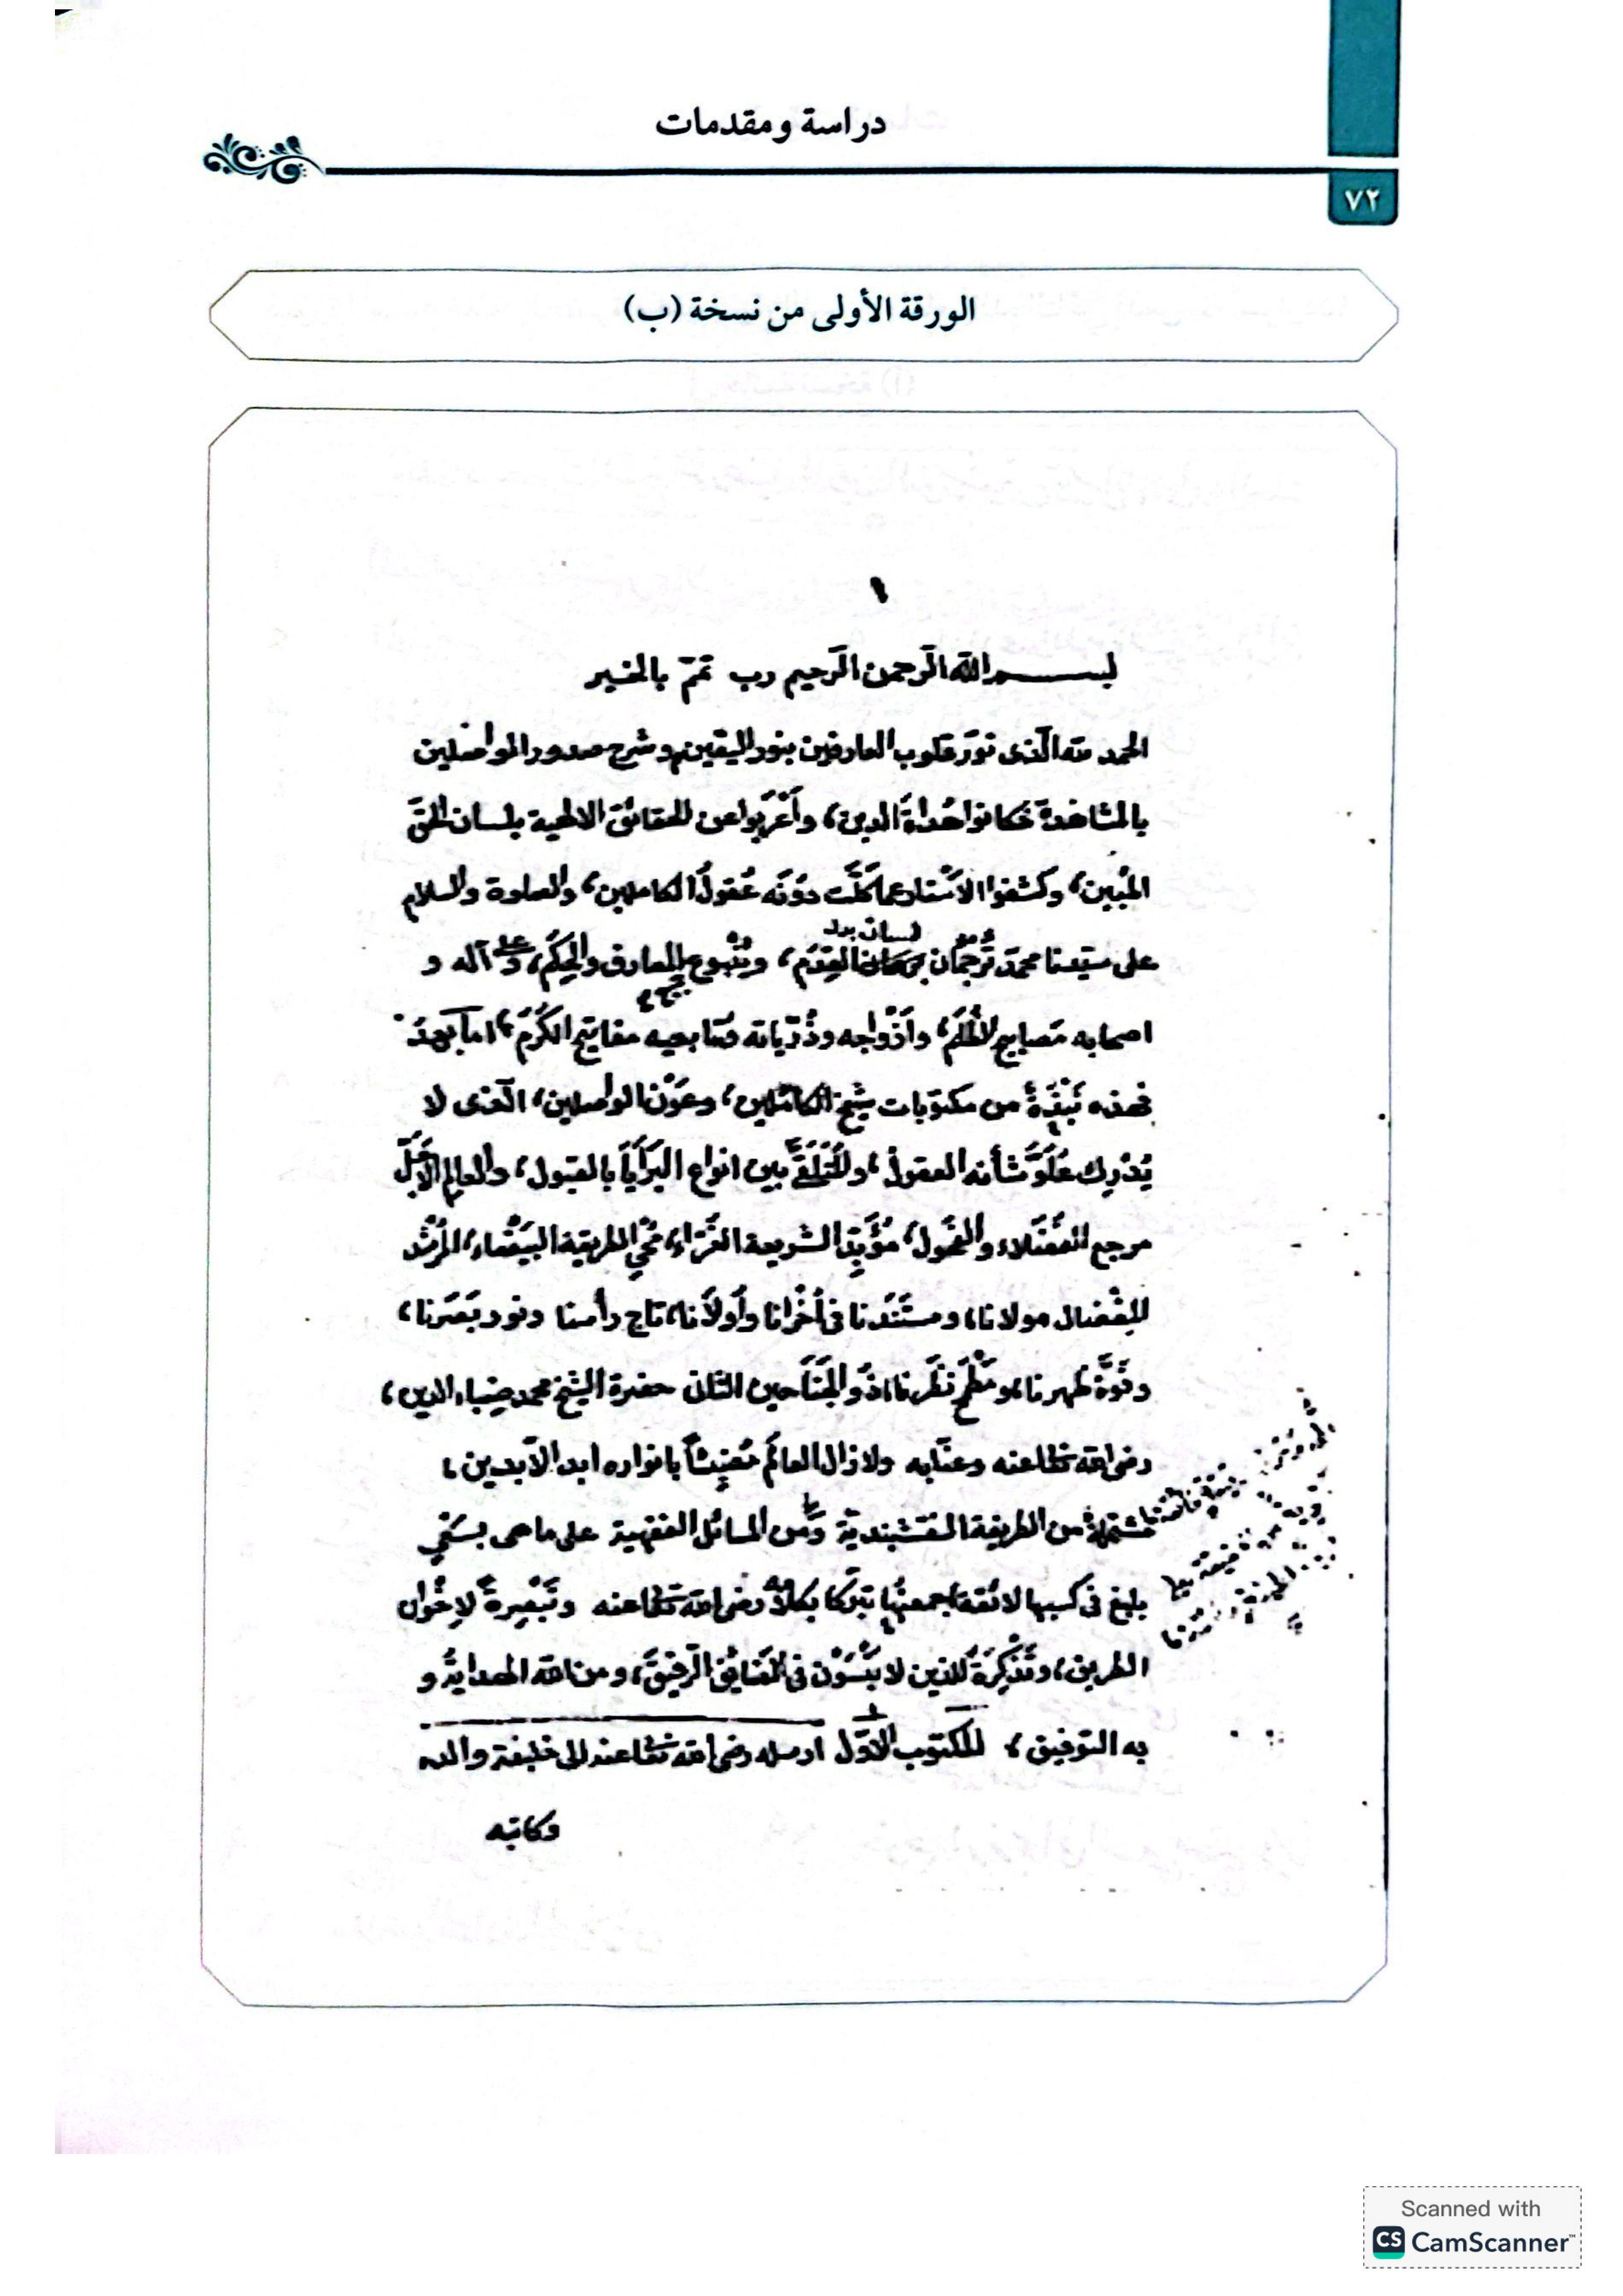 دراسة ومقدمات
٧٢
الورقة الأولى من نسخة (ب)
١
بسم الله الرحمن الرحيم رب تمّم بالخير
الحمد لله الّذى نوّر قلوب العارفين بنور اليقين، وشرح صدور الواصلين
بالمشاهدة فكانوا هُداةَ الدين، وأَعْرَبُوا عن الحقائق الالهية بلسان الحقّ
المُبين، وكشفوا الاَسْتار عما كَلَّت دُونَه عُقولُ الكاملين، والصلوة والسلام
على سيّدنا محمّد تُرجُمَان لسان القِدَم، ويَنْبوع المعارف والحِكَم، وعلى آله و
اصحابه مَصابيح الظُّلَم، وأَزْواجه وذُرّياته ومُتابعيه مفاتيح الكَرَم، امابعدُ
فهذه نُبْذَةٌ من مكتوبات شيخ الكاملين، وعَوْن الواصلين، الّذى لا
يُدْرِك عُلُوَّ شأنه العقول، والمُتَلَقَّى بين انواع البَرَايَا بالقبول، والعالِم الاَجَلّ
مرجع الفُضَلاء والفُحول، مُؤَيِّد الشريعة الغَرّاء، مُحْيِ الطريقة البَيْضاء، المُرْشد
المِفْضال مولانا، ومستَنَدنا فى أُخْرانا وأُولاَنا، تاج رأسنا ونور بَصَرنا،
وقُوَّة ظهرنا، ومَطْمَح نَظَرنا، ذُو الجَنَاحين الثانى حضرة الشيخ محمد ضياء الدين،
رضى الله تعالى عنه وعنّا به ولازال العالَم مُضِيئاً بانواره ابد الآبدين،
مشتملة من الطريقة النقشبنديّة ومن المسائل الفقهية على ماهى بسَعْيٍ
بليغ فى كسبها لائقة، جمعتُها تبرّكا بكلامه رضى الله تعالى عنه وتَبْصِرةً لاِخْوان
الطريق، وتَذْكِرَةً للذين لا يَنْسَوْن فى المَضايِق الرفيقَ، ومن الله الهدايةُ و
به التوفيق، المكتوب الاوّل ارسله رضى الله تعالى عنه الى خليفة والده
وكاتبه
Scanned with
CS CamScanner